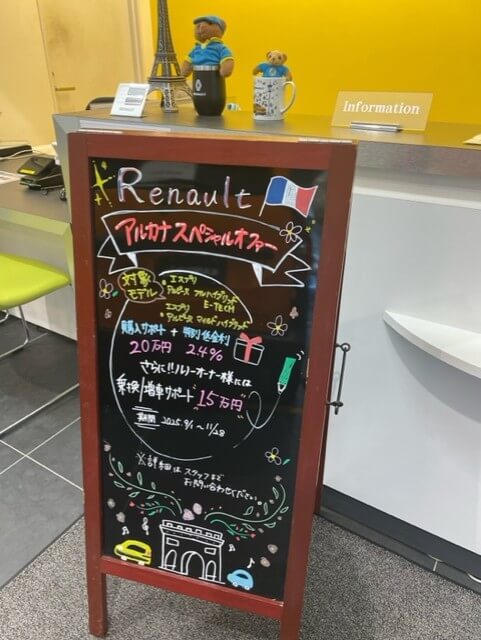 Information
Renault
アルカナスペシャルオファー
対象
モデル
・エスプリ
アルピーヌ フルハイブリッド
E-TECH
・エスプリ
アルピーヌ マイルドハイブリッド
購入サポート + 特別低金利
20万円 2.4%
さらに!!ルノーオーナー様には
乗換/増車サポート 15万円
期間 2025.9/1〜11/28
※詳細はスタッフまで
お問い合わせください。